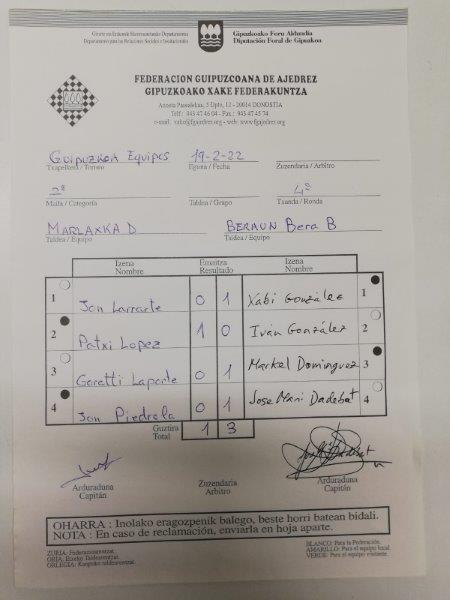 Gipuzkoako Foru Aldundia
Diputación Foral de Gipuzkoa
FEDERACION GUIPUZCOANA DE AJEDREZ
GIPUZKOAKO XAKE FEDERAKUNTZA
Anoeta Pasealekua, 5 Dpto. 12 - 20014 DONOSTIA
Telf: 943 47 46 04 - Fax: 943 45 75 74
e-mail: xake@fgajedrez.org - web: www.fgajedrez.org
Guipuzkoa Equipos 19-2-22
Txapelketa / Torneo Eguna / Fecha Zuzendaria / Arbitro
2ª 4ª
Maila / Categoría Taldea / Grupo Txanda / Ronda
MARLAXKA D BERAUN Bera B
Taldea / Equipo Taldea / Equipo
Izena Emaitza Izena
Nombre Resultado Nombre
1 Jon Larrarte 0 1 Xabi González 1
2 Patxi Lopez 1 0 Iván González 2
3 Goretti Laparte 0 1 Markel Dominguez 3
4 Jon Piedrola 0 1 Jose Mari Dadebat 4
Guztira
Total 1 3
Arduraduna Zuzendaria Arduraduna
Capitán Arbitro Capitán
OHARRA : Inolako eragozpenik balego, beste horri batean bidali.
NOTA : En caso de reclamación, enviarla en hoja aparte.
ZURIA: Federazioarentzat. BLANCO: Para la Federación.
ORIA: Etxeko Taldearentzat. AMARILLO: Para el equipo local.
ORLEGIA: Kanpoko taldearentzat. VERDE: Para el equipo visitante.